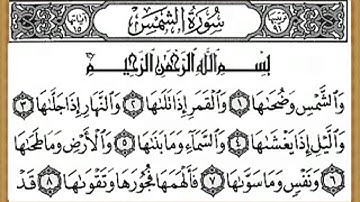 ترتيبها ٩١ سورة الشمس آياتها ١٥
بِسْمِ اللَّهِ الرَّحْمَٰنِ الرَّحِيمِ
وَالشَّمْسِ وَضُحَىٰهَا ١ وَالْقَمَرِ إِذَا تَلَىٰهَا ٢ وَالنَّهَارِ إِذَا جَلَّىٰهَا ٣
وَاللَّيْلِ إِذَا يَغْشَىٰهَا ٤ وَالسَّمَاءِ وَمَا بَنَىٰهَا ٥ وَالْأَرْضِ وَمَا طَحَىٰهَا
٦ وَنَفْسٍ وَمَا سَوَّىٰهَا ٧ فَأَلْهَمَهَا فُجُورَهَا وَتَقْوَىٰهَا ٨ قَدْ